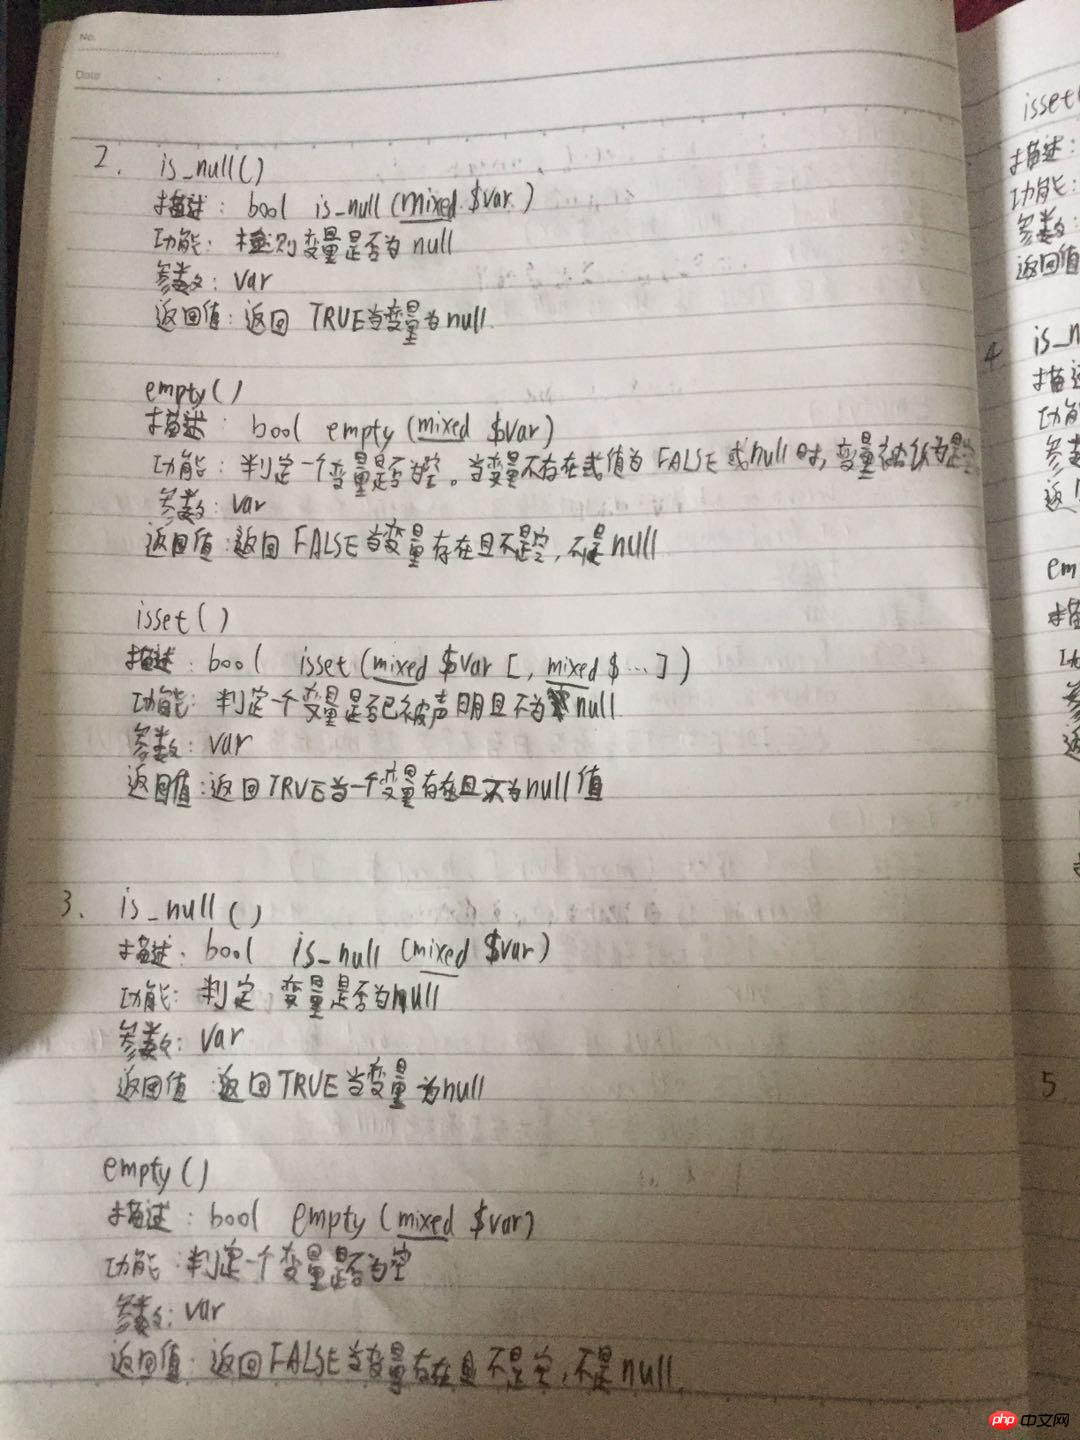 No.
Date
2. is_null()
描述: bool is_null(mixed $var)
功能: 检测变量是否为 null
参数: var
返回值: 返回 TRUE当变量为null.
empty()
描述: bool empty (mixed $var)
功能: 判定一个变量是否为空。当变量不存在或值为 FALSE 或null时, 变量被认为是空
参数: var
返回值: 返回 FALSE当变量存在且不是空, 不是null
isset()
描述: bool isset (mixed $var [, mixed $ … ])
功能: 判定一个变量是否已被声明且不为 null
参数: var
返回值: 返回 TRUE当一个变量存在且不为null值
3. is_null()
描述: bool is_null (mixed $var)
功能: 判定 变量是否为null
参数: var
返回值 返回TRUE当变量为null
empty()
描述: bool empty (mixed $var)
功能: 判定一个变量是否为空
参数: var
返回值: 返回FALSE当变量存在且不是空, 不是null.
isset(
描述:
功能:
参数:
返回值
4 is_n
描述
功能
参
返
em
描
功
参
返
5.
php 中文网